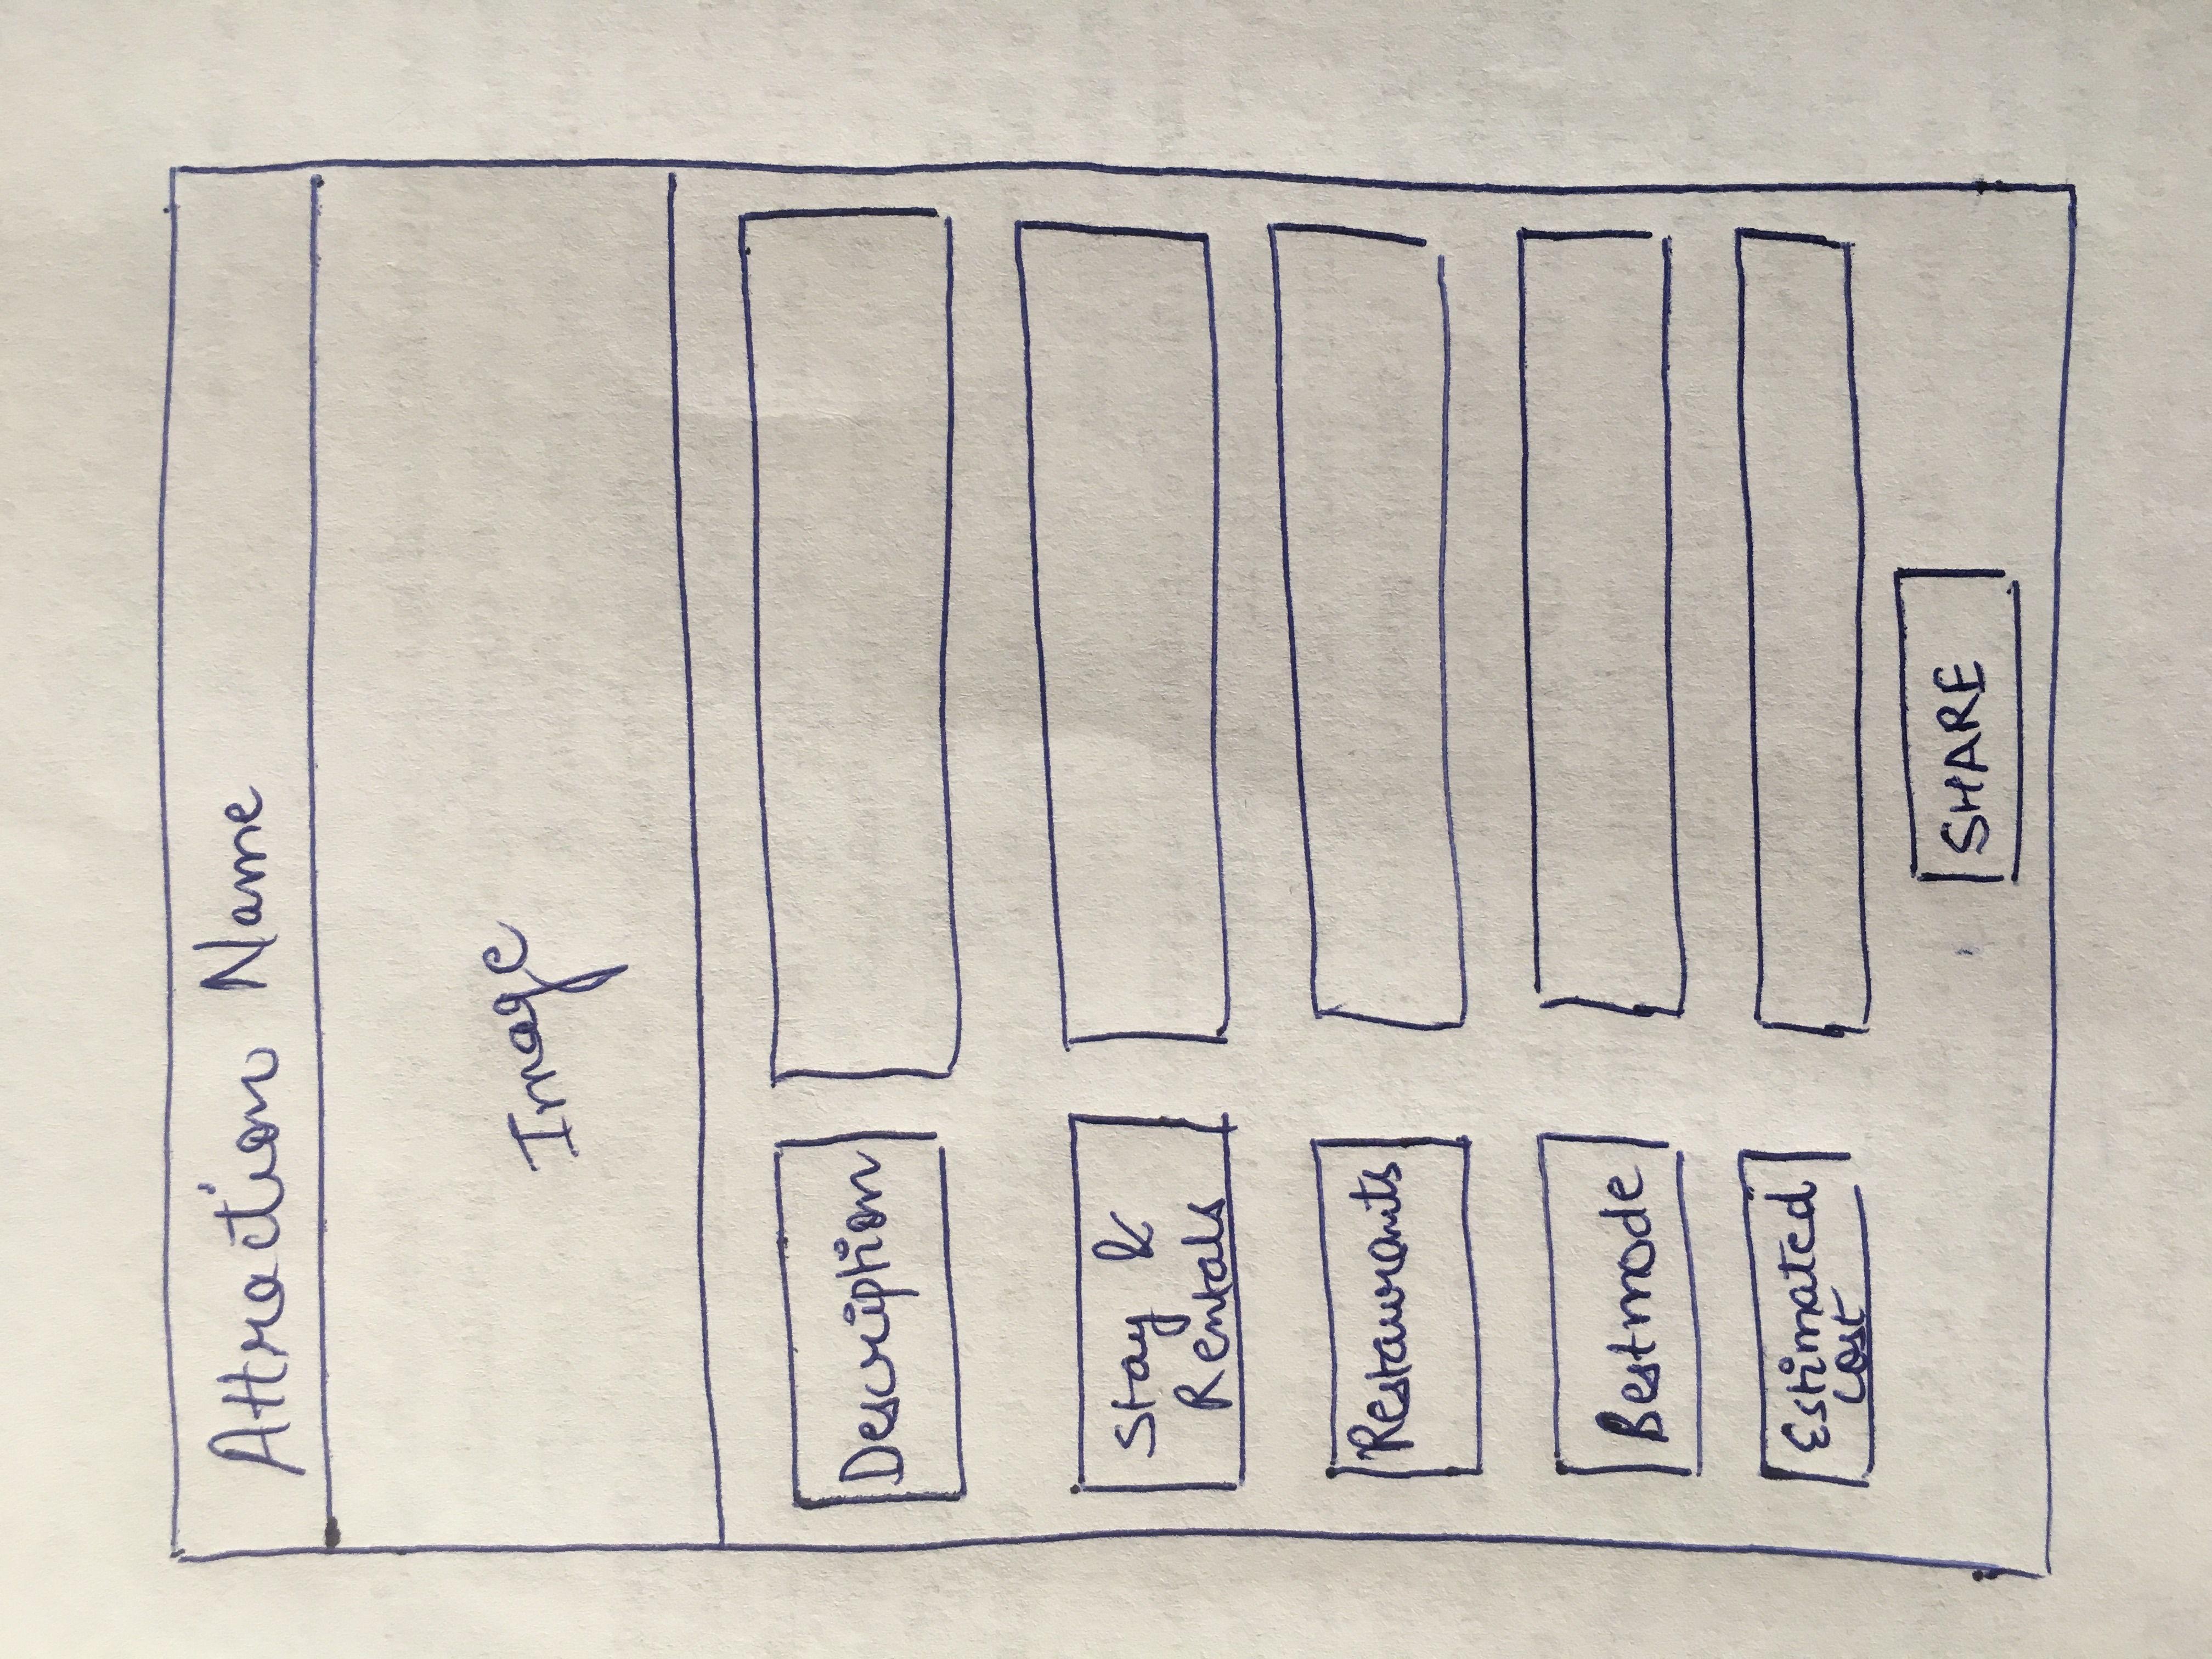 Attraction Name
Image
Description
Stay &
Rentals
Restaurants
Bestmode
Estimated
cost
SHARE